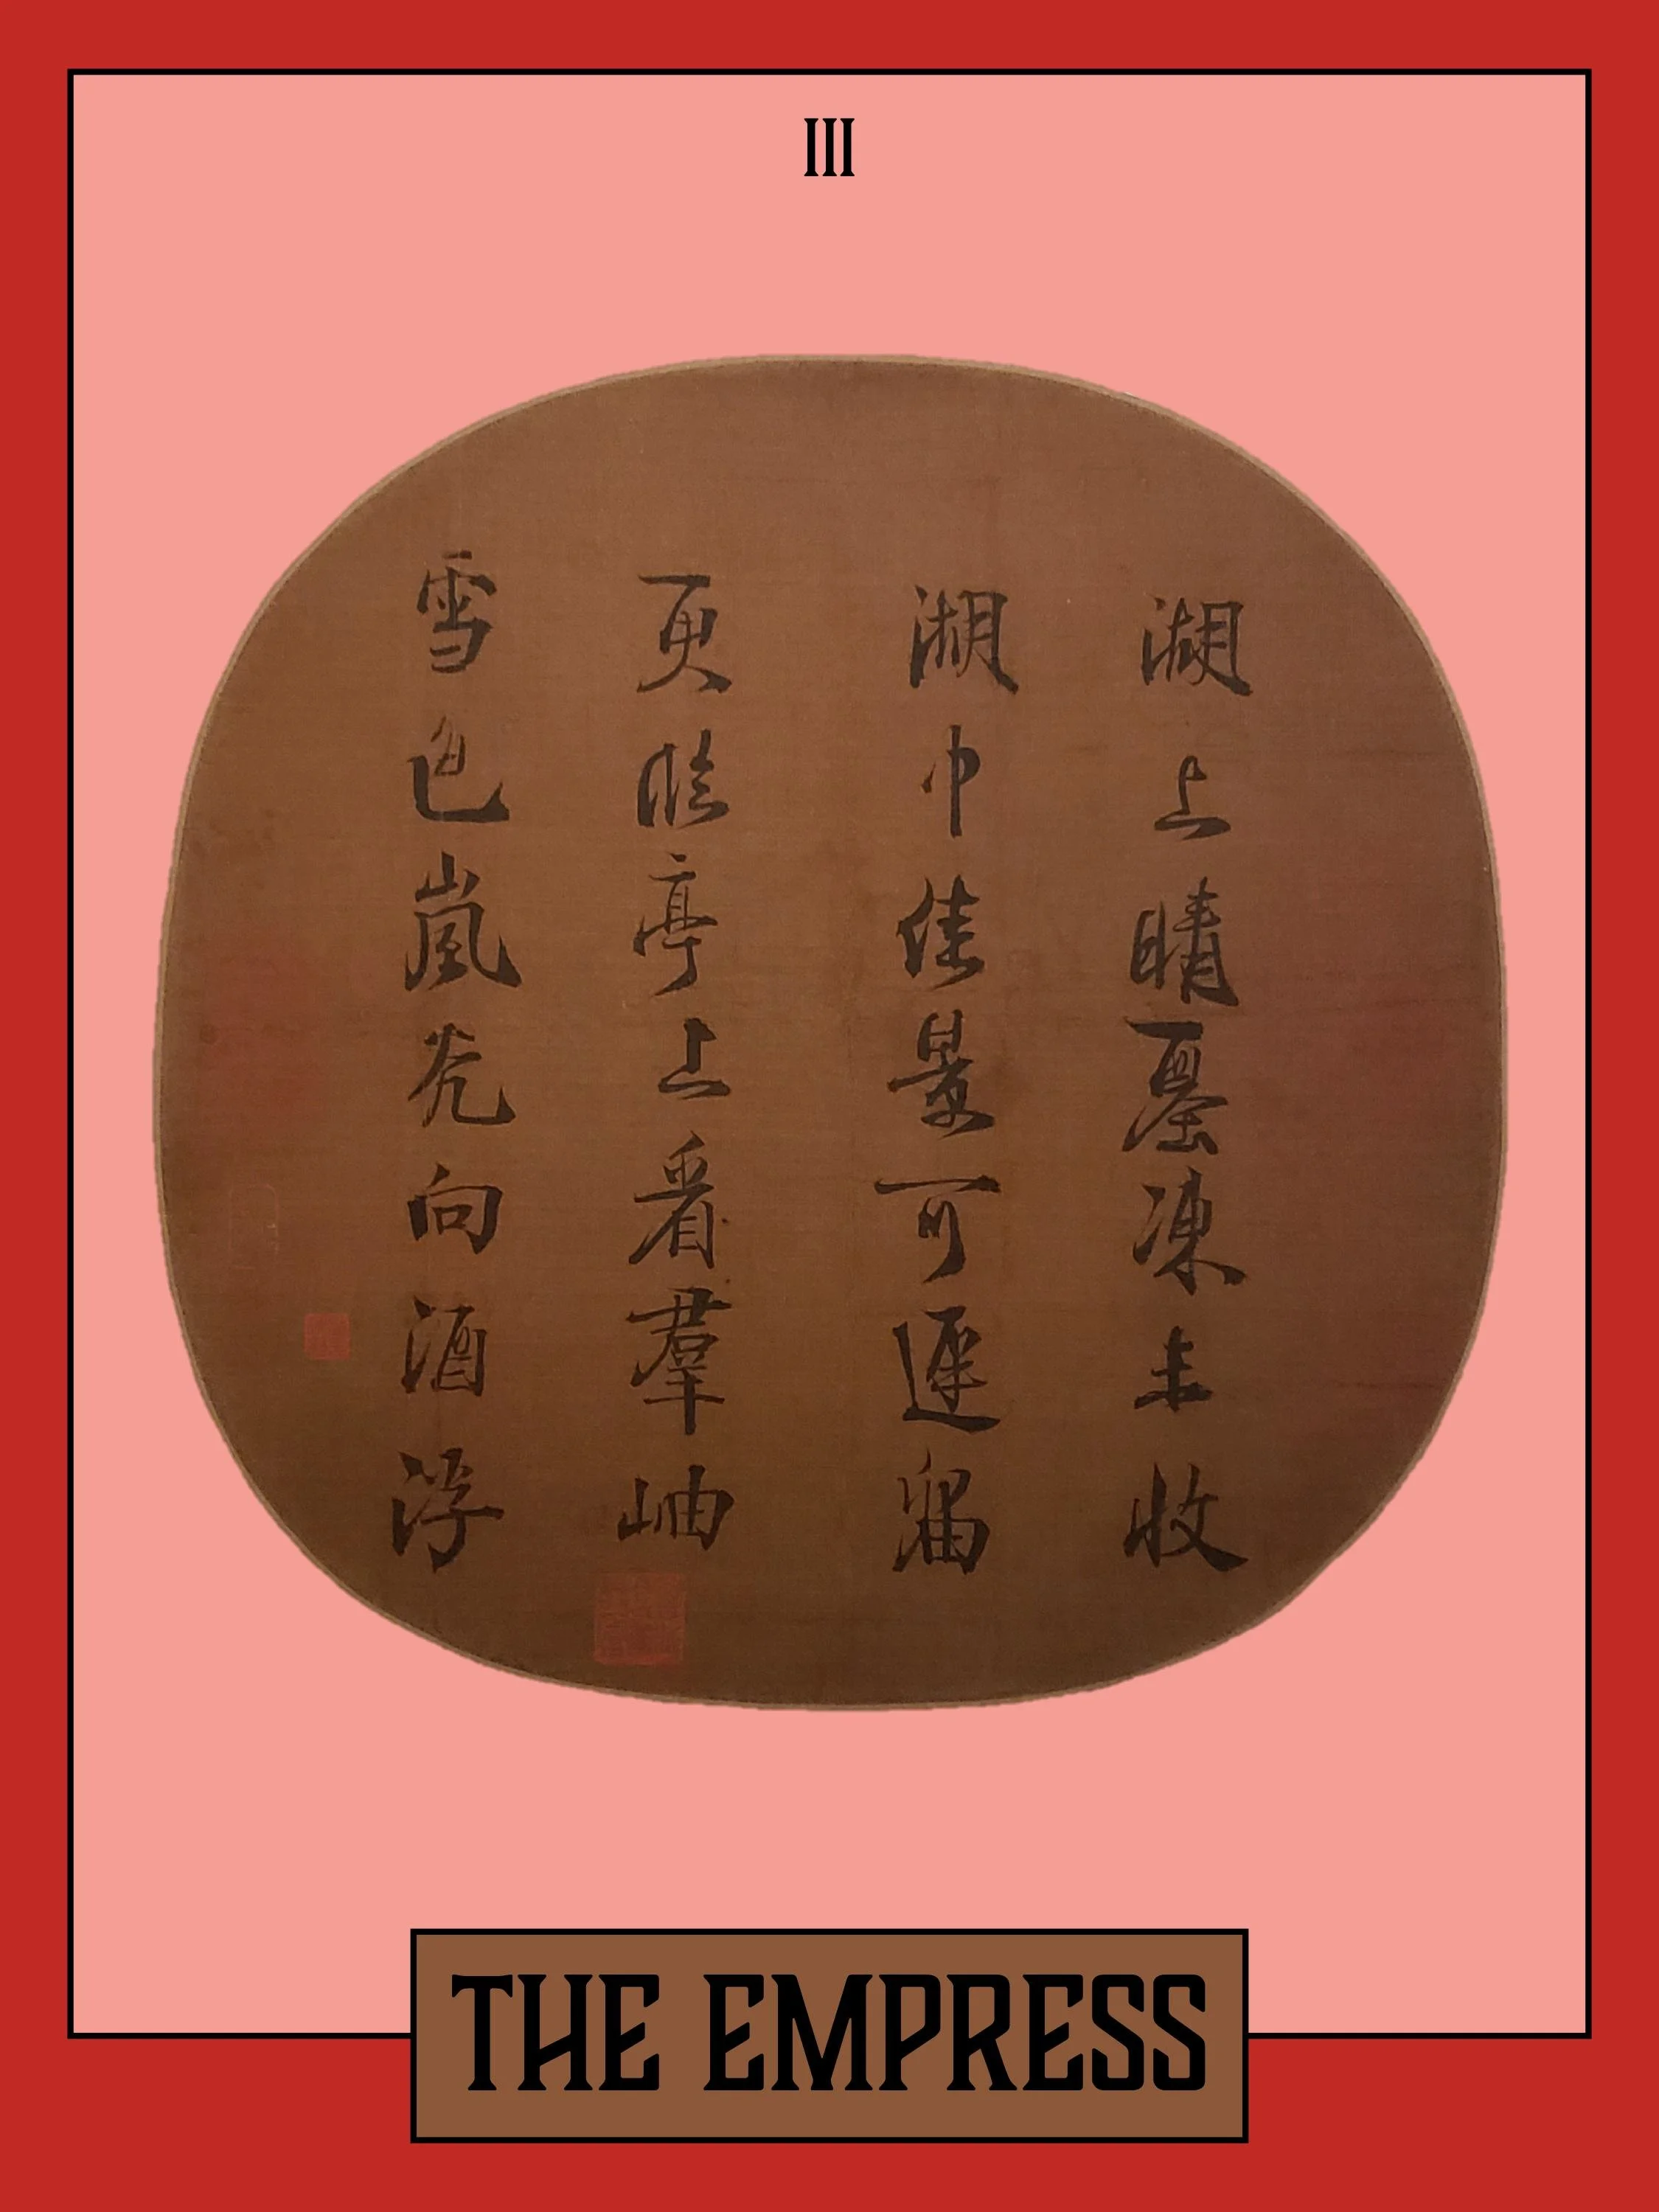 III
湖上晴凍未收
湖中佳景可遲留
更臨亭上看羣岫
雪色嵐光向酒浮
THE EMPRESS